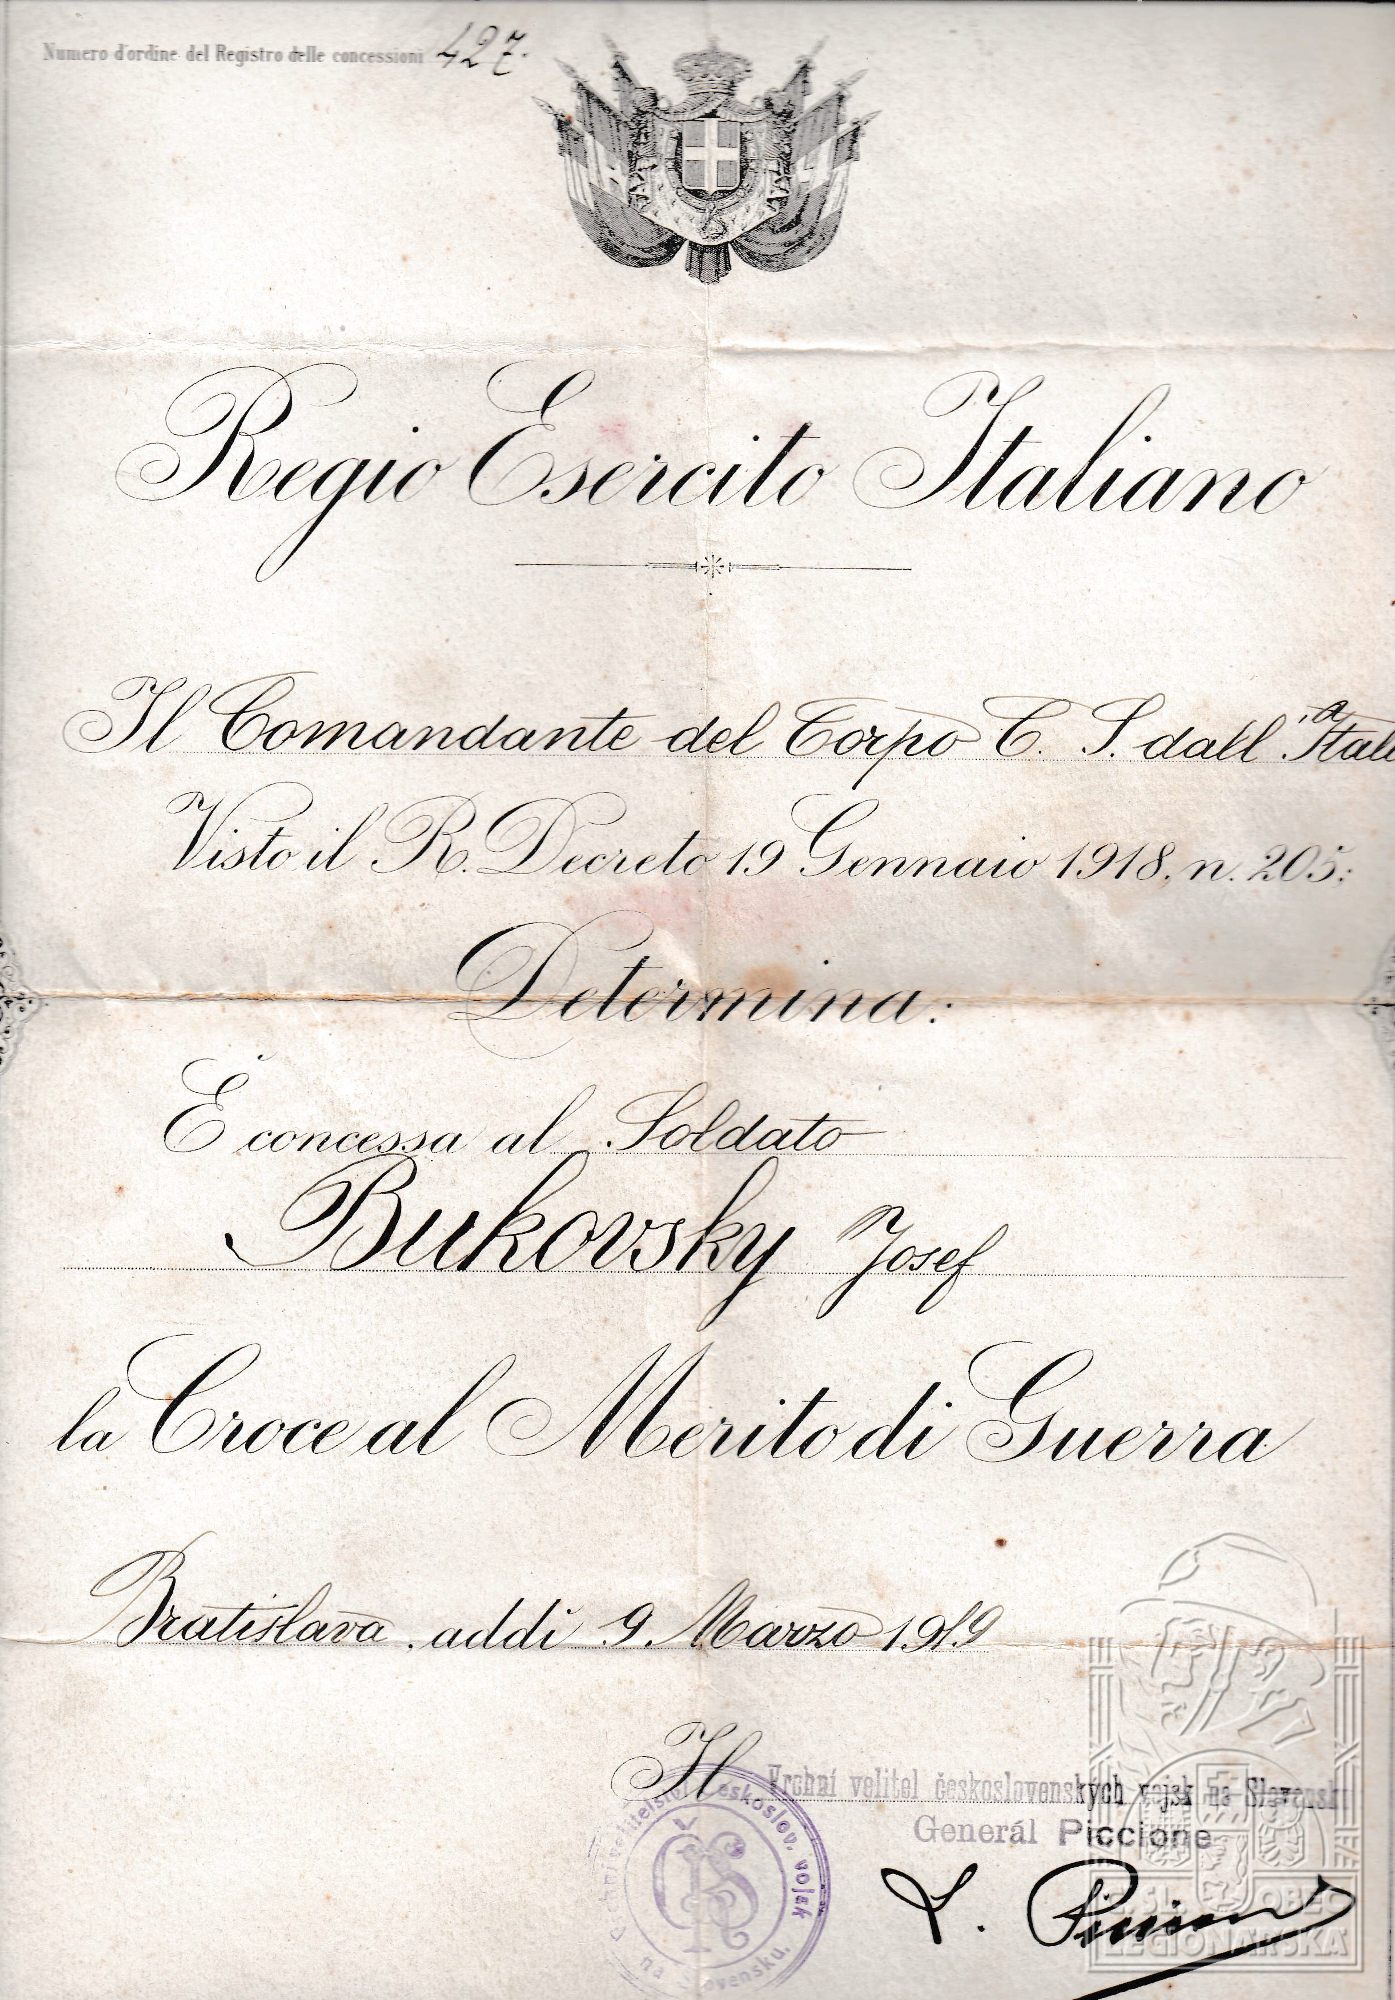 Numero d'ordine del Registro delle concessioni 427.
Regio Esercito Italiano
Il Comandante del Corpo C. S. dall'Itali
Visto il R. Decreto 19 Gennaio 1918, n. 205:
Determina:
È concessa al Soldato
Bukovsky Josef
la Croce al Merito di Guerra
Bratislava, addì 9. Marzo 1919
Il Vrchní velitel československých vojsk na Slovensku
Generál Piccione
velitelství českoslov. vojsk
na Slovensku.
ČS
L. Piccione
Č. SL. OBEC
LEGIONÁŘSKÁ